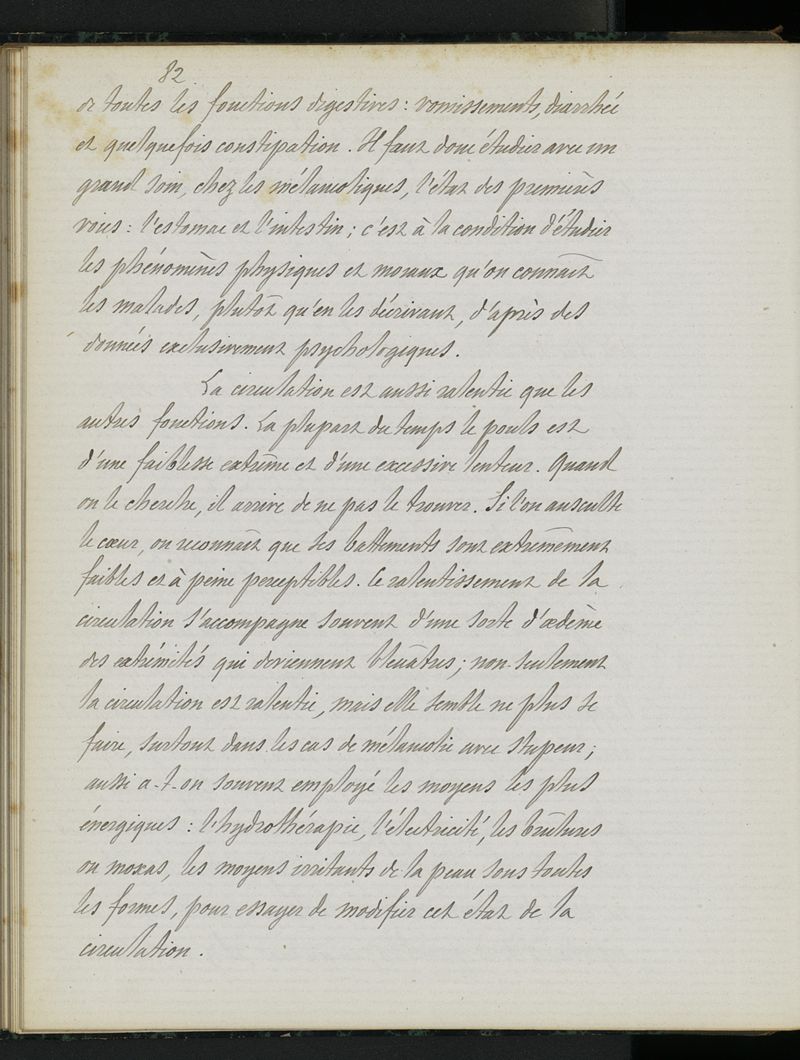 82
de toutes les fonctions digestives : vomissements, diarrhée
et quelquefois constipation. Il faut donc étudier avec un
grand soin, chez les mélancoliques, l'état des premières
voies : l'estomac et l'intestin ; c'est à la condition d'étudier
les phénomènes physiques et moraux qu'on connaît
les malades, plutôt qu'en les décrivant, d'après des
données exclusivement psychologiques.
La circulation est aussi ralentie que les
autres fonctions. La plupart du temps le pouls est
d'une faiblesse extrême et d'une excessive lenteur. Quand
on le cherche, il arrive de ne pas le trouver. Si l'on ausculte
le cœur, on reconnaît que ses battements sont extrêmement
faibles et à peine perceptibles. Ce ralentissement de la
circulation s'accompagne souvent d'une sorte d'œdème
des extrémités qui deviennent bleuâtres ; non-seulement
la circulation est ralentie, mais elle semble ne plus se
faire, surtout dans les cas de mélancolie avec stupeur ;
aussi a-t-on souvent employé les moyens les plus
énergiques : l'hydrothérapie, l'électricité, les brûlures
ou moxas, les moyens irritants de la peau sous toutes
les formes, pour essayer de modifier cet état de la
circulation.